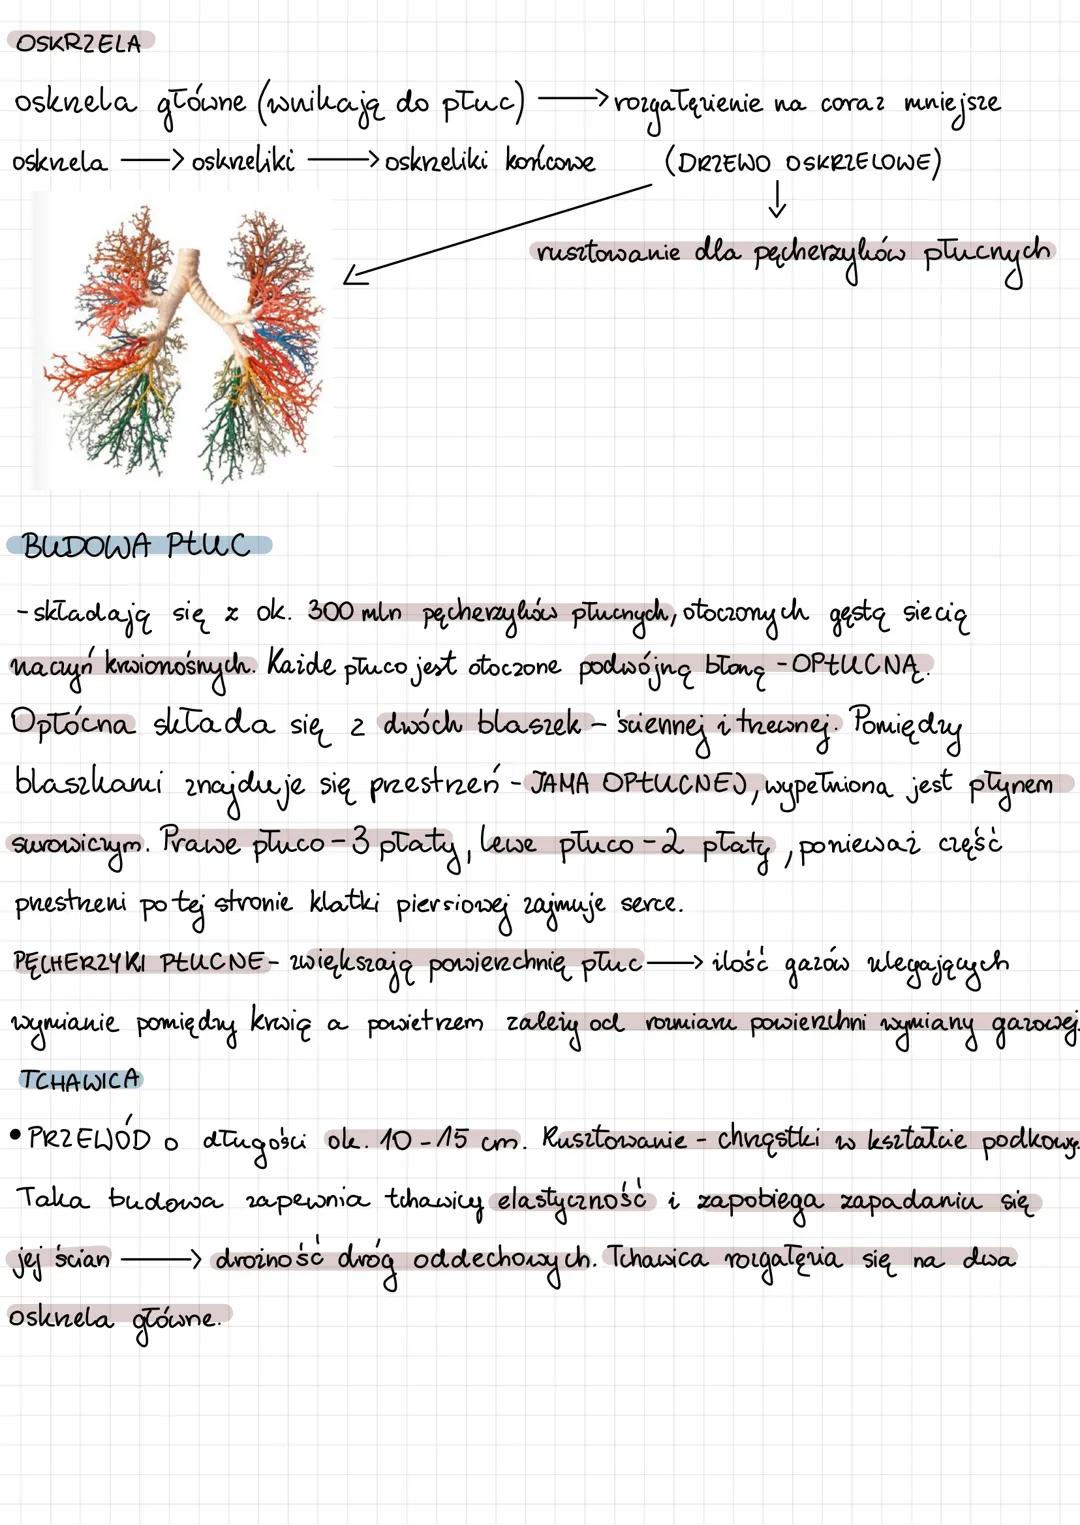 OSKRZELA
oskrzela główne (wnikają do płuc) → rozgałęzienie na coraz mniejsze
oskrzela → oskrzeliki → oskrzeliki końcowe (DRZEWO OSKRZELOWE)
↓
rusztowanie dla pęcherzyków płucnych
BUDOWA PŁUC
- składają się z ok. 300 mln pęcherzyków płucnych, otoczonych gęstą siecią
naczyń krwionośnych. Każde płuco jest otoczone podwójną błoną - OPŁUCNĄ.
Opłócna składa się z dwóch blaszek - ściennej i trzewnej. Pomiędzy
blaszkami znajduje się przestrzeń - JAMA OPŁUCNEJ, wypełniona jest płynem
surowiczym. Prawe płuco - 3 płaty, lewe płuco - 2 płaty, ponieważ część
przestrzeni po tej stronie klatki piersiowej zajmuje serce.
PĘCHERZYKI PŁUCNE - zwiększają powierzchnię płuc → ilość gazów ulegających
wymianie pomiędzy krwią a powietrzem zależy od rozmiaru powierzchni wymiany gazowej.
TCHAWICA
• PRZEWÓD o długości ok. 10 - 15 cm. Rusztowanie - chrząstki w kształcie podkowy.
Taka budowa zapewnia tchawicy elastyczność i zapobiega zapadaniu się
jej ścian → drożność dróg oddechowych. Tchawica rozgałęzia się na dwa
oskrzela główne.